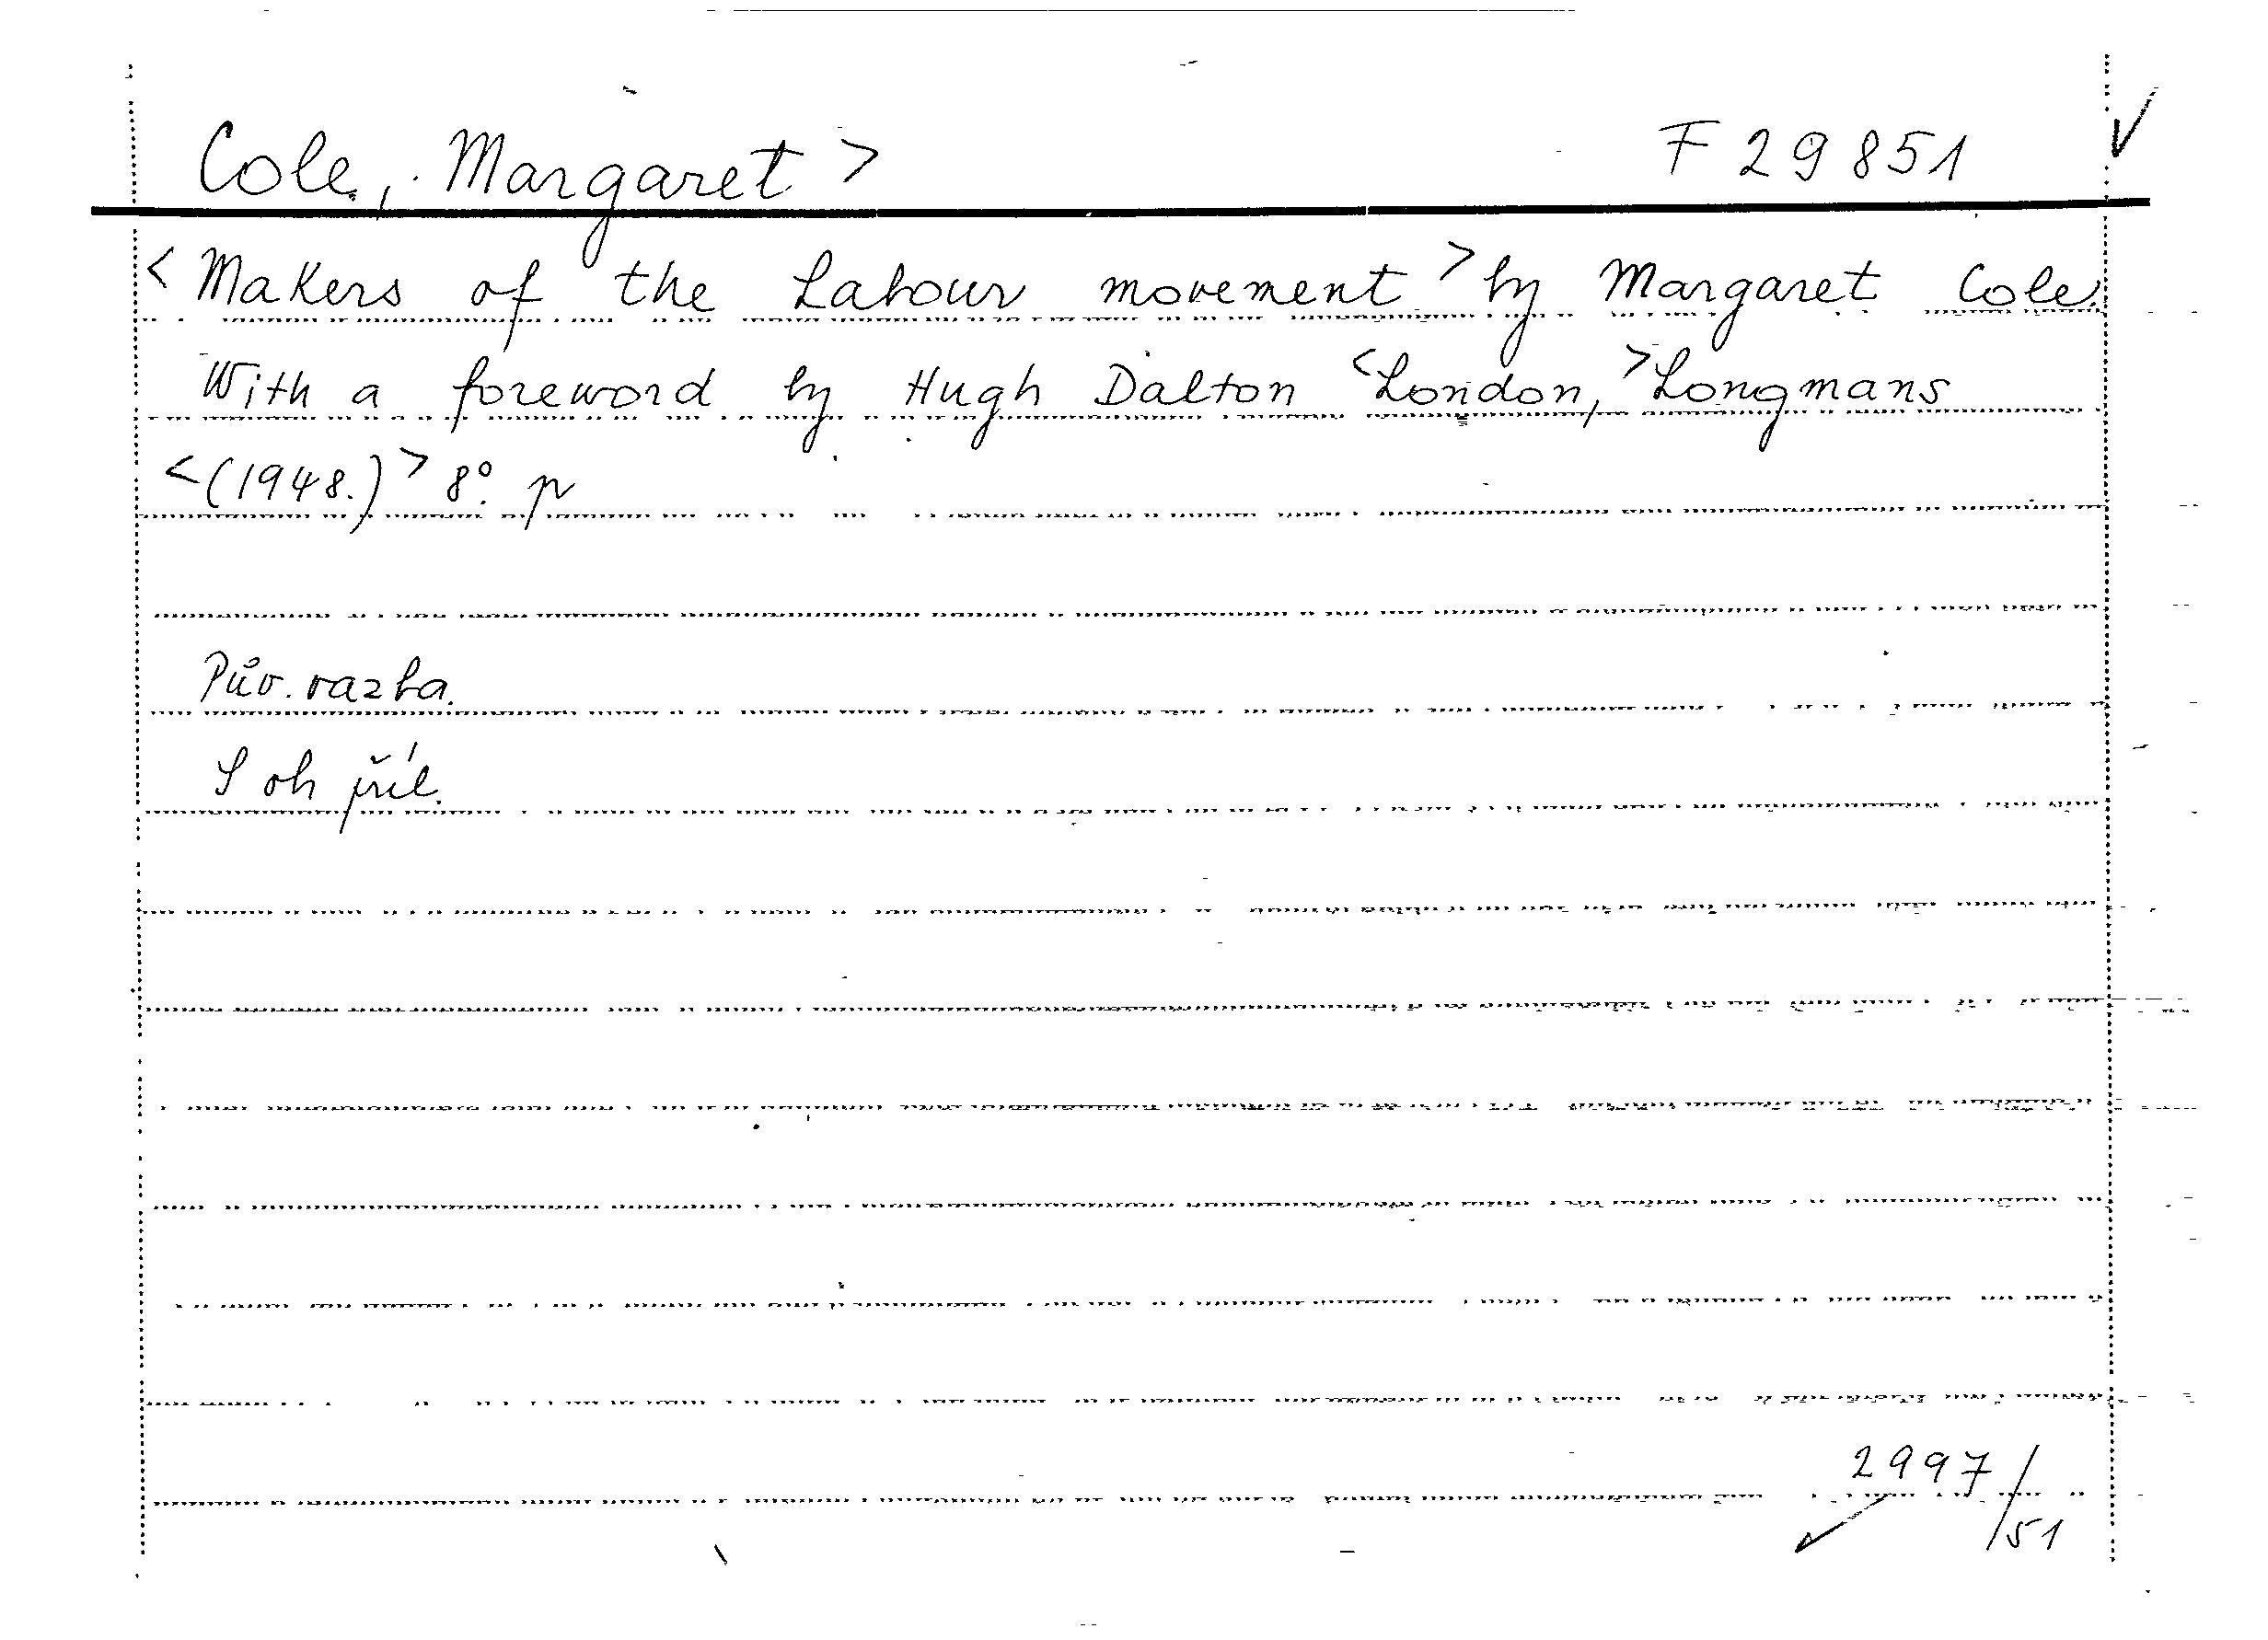 Cole, Margaret > F 29851
< Makers of the Labour movement > by Margaret Cole.
With a foreword by Hugh Dalton <London,> Longmans
<(1948.)> 8°. p
Pův. vazba.
S ob příl.
2997/
51